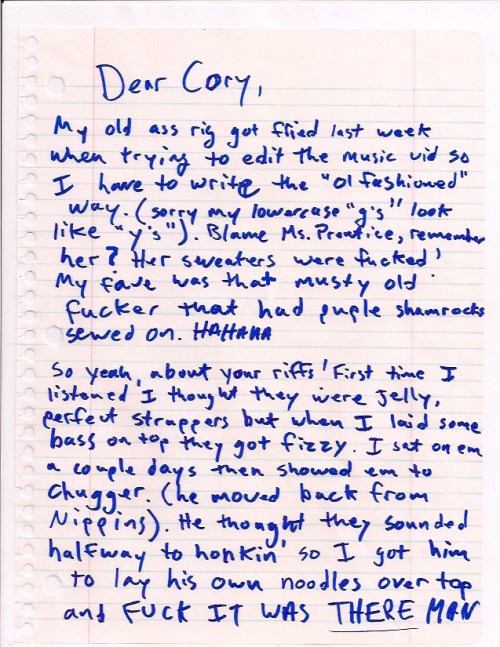 Dear Cory,
My old ass rig got fried last week
when trying to edit the music vid so
I have to write the "ol fashioned"
way. (sorry my lowercase "g's" look
like "y's"). Blame Ms. Prentice, remember
her? Her sweaters were fucked!
My fave was that musty old
fucker that had puple shamrocks
sewed on. HAHAHA
So yeah, about your riffs! First time I
listened I thought they were jelly,
perfect strappers but when I laid some
bass on top they got fizzy. I sat on em
a couple days then showed em to
Chugger. (he moved back from
Nippins). He thought they sounded
halfway to honkin' so I got him
to lay his own noodles over top
and FUCK IT WAS THERE MAN